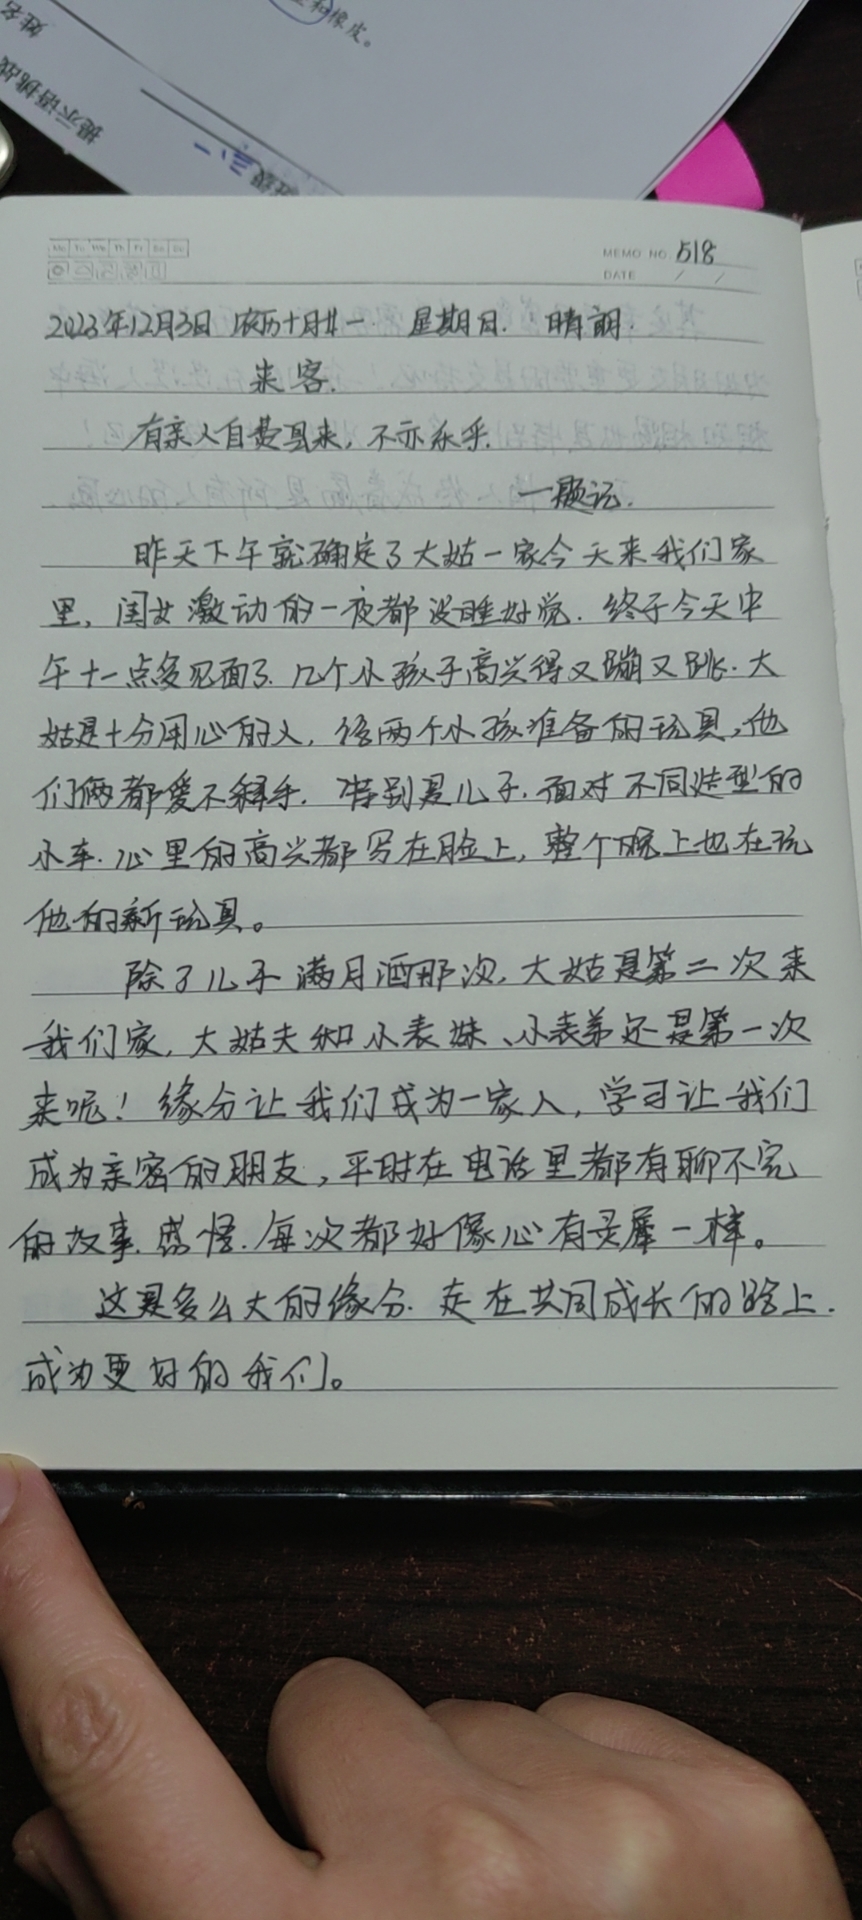 和橡皮。
姓名
提示语挑战
班级 三、一
Mo Tu We Th Fr Sa Su
MEMO NO. 518
DATE / /
2023年12月3日 农历十月廿一 星期日. 晴朗.
来客.
有亲人自娄昌来，不亦乐乎.
—题记.
昨天下午就确定了大姑一家今天来我们家
里，闺女激动的一夜都没睡好觉. 终于今天中
午十一点多见面了. 几个小孩子高兴得又蹦又跳. 大
姑是十分用心的人，给两个小孩准备的玩具，他
们俩都爱不释手. 特别是儿子. 面对不同造型的
小车. 心里的高兴都写在脸上，整个晚上也在玩
他的新玩具。
除了儿子满月酒那次，大姑是第二次来
我们家，大姑夫和小表妹、小表弟还是第一次
来呢！缘分让我们成为一家人，学习让我们
成为亲密的朋友，平时在电话里都有聊不完
的故事.感悟.每次都好像心有灵犀一样。
这是多么大的缘分. 走在共同成长的路上.
成为更好的我们。